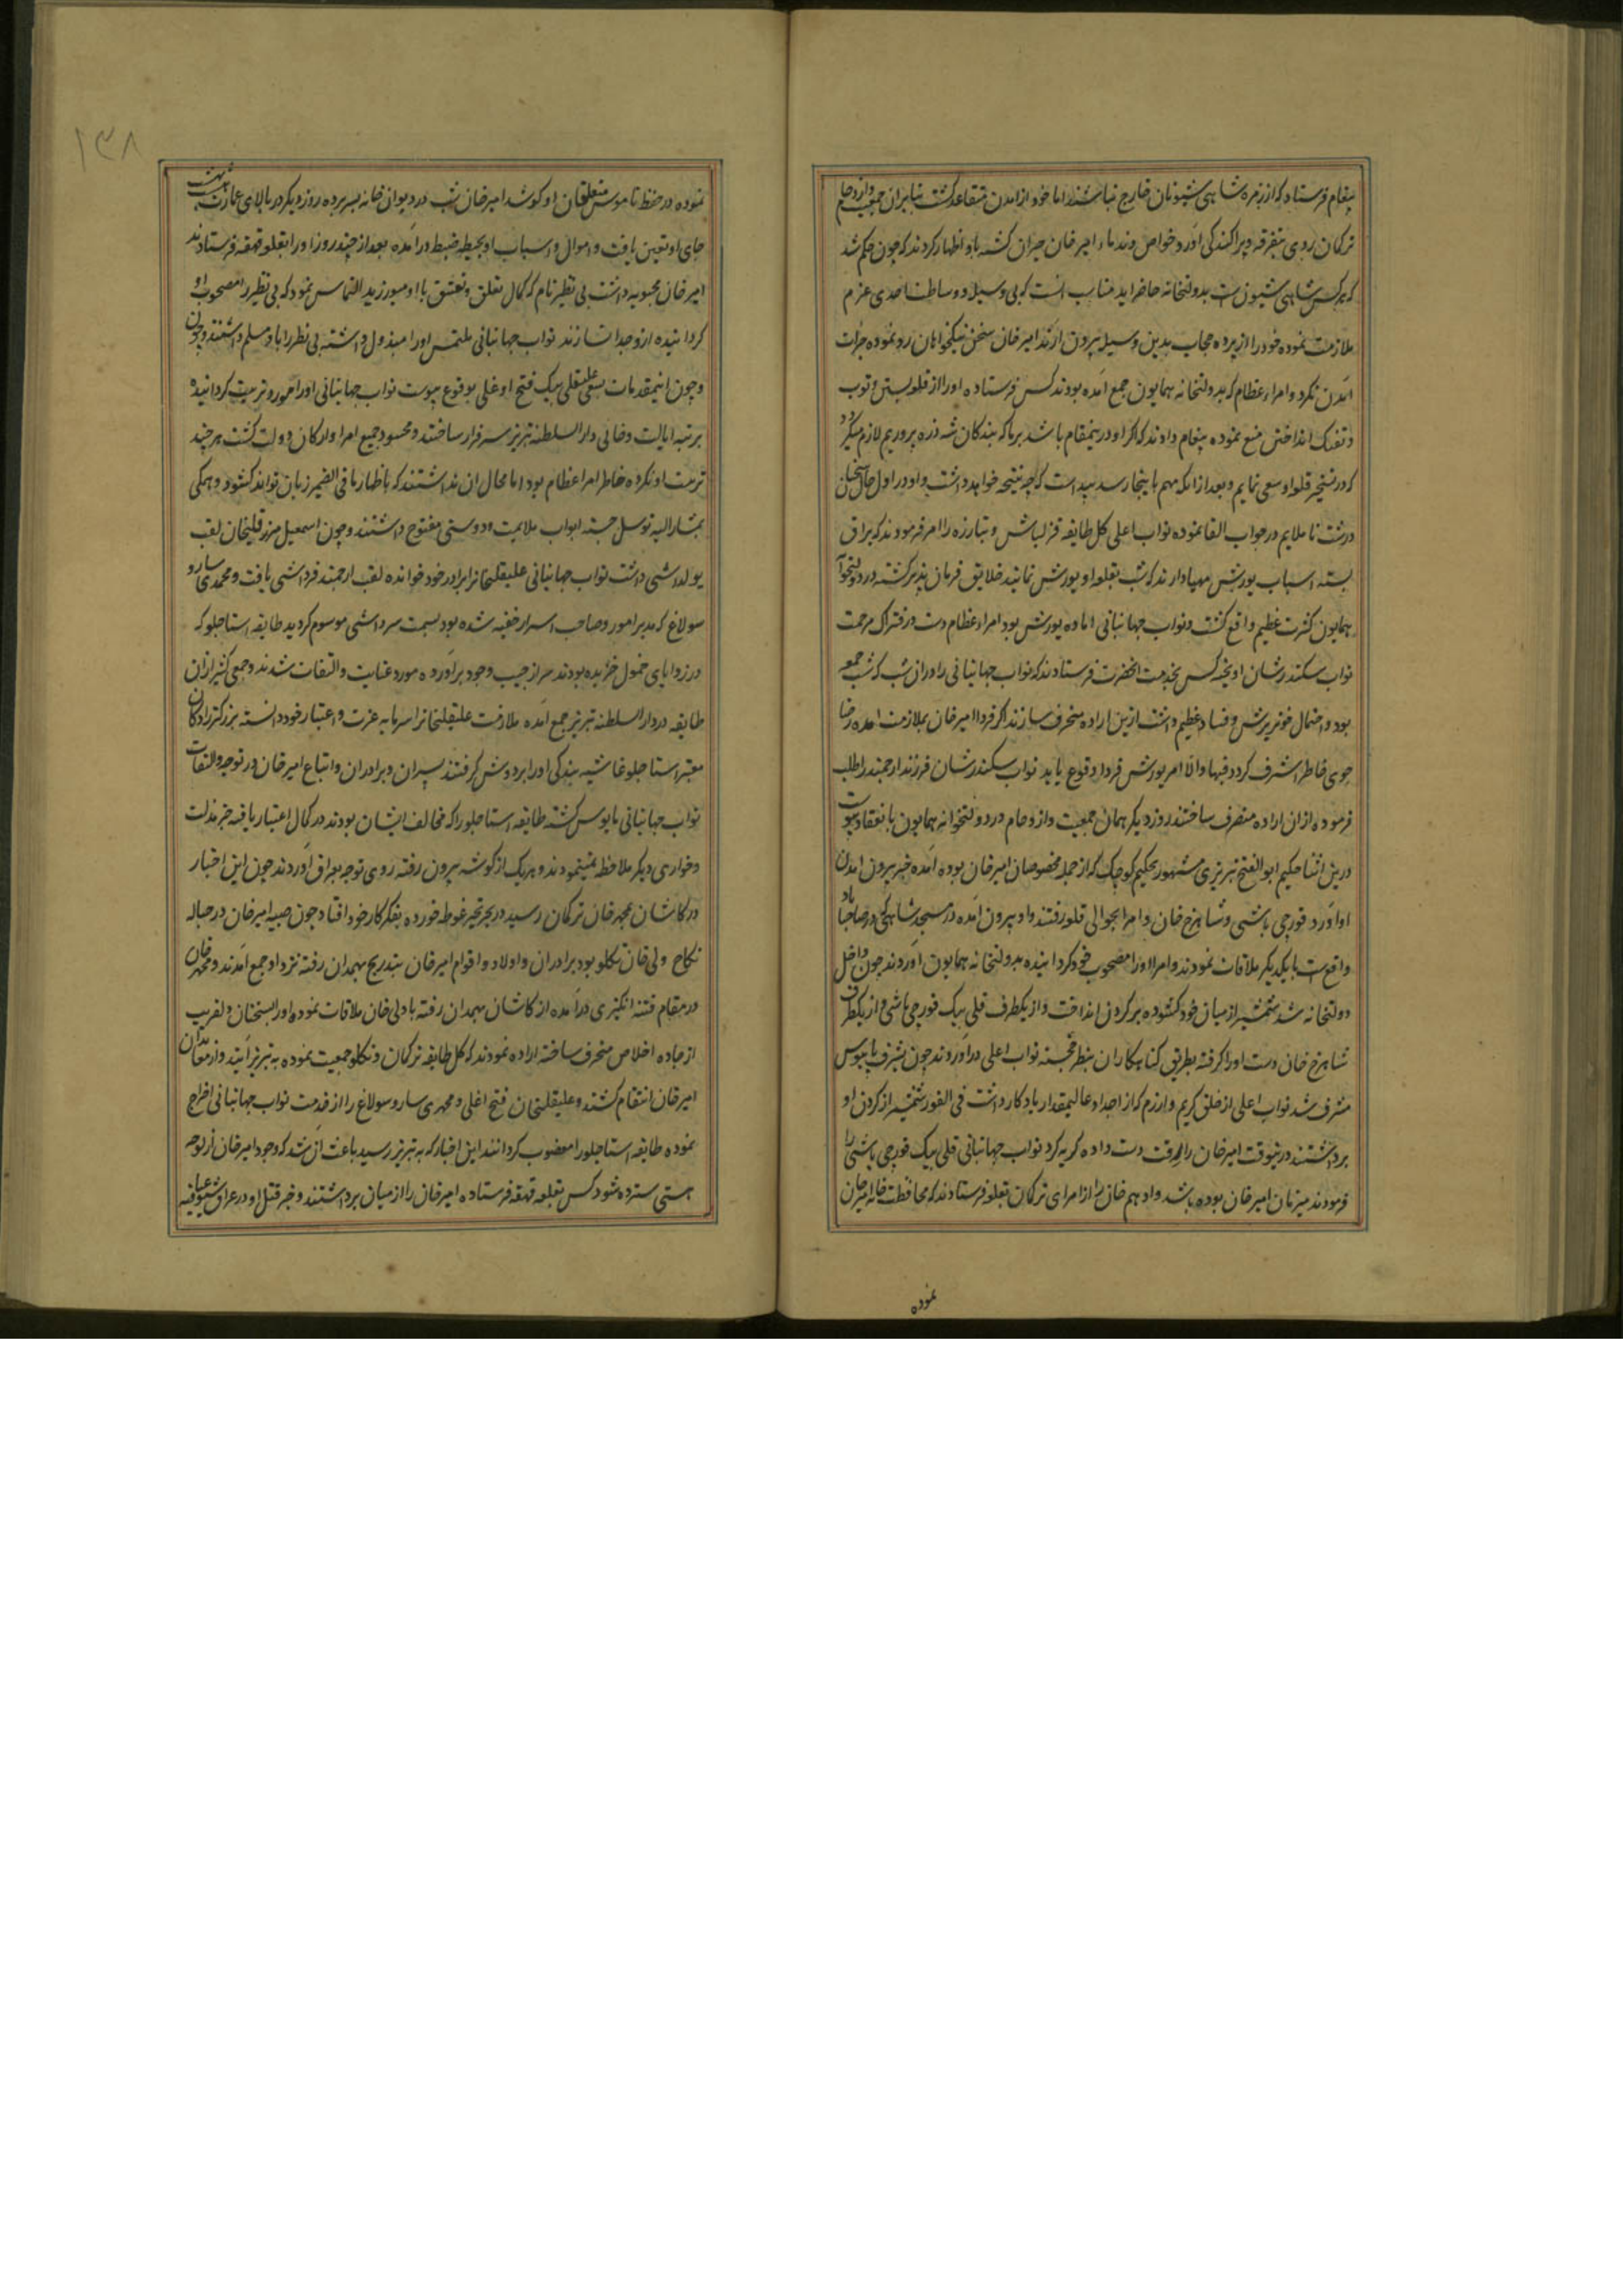 پیغام فرستاد که از زمره شاهی شیونان خارج نباشند اما خود از آمدن متقاعد گشت بنابران جمعیت و ازدحام
ترکمان روی بتفرقه و پراکندگی آورد و خواص و ندماء امیرخان حیران گشته باو اظهار کردند که چون حکم شد
که هر کس شاهی شیون است بدولتخانه حاضر آید مناسب آنست که بی وسیله و وساطت احدی عزم
ملازمت نموده خود را از پرده حجاب بدین وسیله بیرون آرند امیرخان سخن نیکخواهان رد نموده جرات
آمدن نکرد و امراء عظام که بدولتخانه همایون جمع آمده بودند کس فرستاده او را از قلعه بستن و توپ
و تفنک انداختن منع نموده پیغام دادند که اگر او درینمقام باشد بر ما که بندگان شه ذره پروریم لازم میکردد
که در تسخیر قلعه او سعی نمایم و بعد از انکه مهم باینجا رسد پیداست که چه نتیجه خواهد داشت و او در اول حال سخنان
درشت ناملایم در جواب القا نموده نواب اعلی کل طایفه قزلباش و تبارزه را امر فرمودند که یراق
بسته اسباب یورش مهیا دارند که شب بقلعه او یورش نمایند خلایق فرمان پذیر کشته در دولتخوانه
همایون کثرت عظیم واقع کشت و نواب جهانبانی اماده یورش بود امراء عظام دست در فتراک مرحمت
نواب سکندرشان اویخته کس بخدمت انحضرت فرستادند که نواب جهانبانی را دران شب که شب جمعه
بود و احتمال خونریزش و فساد عظیم داشت ازین اراده منحرف سازند اگر فردا امیرخان بملازمت امده رضا
جوی خاطر اشرف کردد فبها والا امر یورش فردا وقوع یابد نواب سکندرشان فرزند ارجمند را طلب
فرموده ازان اراده منصرف ساختند روز دیکر همان جمعیت و ازدحام در دولتخوانه همایون بانعقاد پیوست
درین اثنا حکیم ابوالفتح تبریزی مشهور بحکیم کوچک که از جمله مخصوصان امیرخان بوده آمده خبر بیرون امدن
او آورد قورچی باشی و شاهرخ خان و امرا بحوالی قلعه رفتند و او بیرون آمده در مسجد شاهی که در صاحباباد
واقع است با یکدیکر ملاقات نمودند و امرا او را مصحوب خود کردانیده بدولتخانه همایون اوردند چون داخل
دولتخانه شد شمشیر از میان خود کشوده بر کردن انداخت و از یکطرف قلی بیک قورچی باشی و از یکطرف
شاهرخ خان دست او را کرفته بطریق کناهکاران بنظر خجسته نواب اعلی درآوردند چون بشرف پایبوس
مشرف شد نواب اعلی از خلق کریم و ارزم که از اجداد عالیمقدار یادکار داشت فی الفور شمشیر از کردن او
برداشتند درینوقت امیرخان را رقت دست داده گریه کرد نواب جهانبانی قلی بیک قورچی باشی را
فرمودند میزبان امیرخان بوده باشد و ادهم خان را از امرای ترکمان بقلعه فرستادند که محافظت خانه امیرخان
نموده
۱۳۸
نموده در حفظ ناموس متعلقان او کوشد امیرخان شب در دیوان خانه بسر برده روز دیگر در بالای عمارت هشت بهشت
جای او تعیین یافت و اموال و اسباب او بحیطه ضبط درآمده بعد از چند روز او را بقلعه قهقهه فرستادند
امیرخان محبوبه داشت بی نظیر نام که کمال تعلق و تعشق با او میورزید التماس نمود که بی نظیر را مصحوب او
کردانیده ازو جدا نسازند نواب جهانبانی ملتمس او را مبذول داشته بی نظیر را باو مسلم داشتند و چون
و چون اینمقدمات بسعی علیقلی بیک فتح اوغلی بوقوع پیوست نواب جهانبانی او را مورد تربیت کردانیده
برتبه ایالت و خانی دار السلطنه تبریز سرافراز ساختند و محسود جمیع امرا و ارکان دولت کشت هر چند
تربیت او نکرده خاطر امرا عظام بود اما مجال ان نداشتند که باظهار ما فی الضمیر زبان توانند کشود و همکی
بمشار الیه توسل جسته ابواب ملایمت و دوستی مفتوح داشتند و چون اسمعیل میرزا قلیخان لقب
یولداشی داشت نواب جهانبانی علیقلیخانرا برادر خود خوانده لقب ارجمند قرداشی یافت و محمدی سارو
سولاغ که مدبر امور و صاحب اسرار خفیه شده بود بسمت سرداشی موسوم کردید طایفه استاجلو که
در زوایای خمول خزیده بودند سر از جیب وجود برآورده مورد عنایت و التفات شدند و جمعی کثیر ازان
طایفه در دار السلطنه تبریز جمع آمده ملازمت علیقلیخانرا سرمایه عزت و اعتبار خود دانسته بزرکترادکان
معتبر استاجلو غاشیه بندگی او را بر دوش گرفتند پسران و برادران و اتباع امیرخان در توجه و التفات
نواب جهانبانی مایوس کشته طایفه استاجلو را که مخالف ایشان بودند در کمال اعتبار یافته جز مذلت
و خواری دیکر ملاحظه نمینمودند و هر یک از گوشه بیرون رفته روی توجه بعراق آوردند چون این اخبار
در کاشان بمحمد خان ترکمان رسید در بحر تحیر غوطه خورده بفکر کار خود افتاد چون صبیه امیرخان در حباله
نکاح ولی خان تکلو بود برادران و اولاد و اقوام امیرخان بتدریج بهمدان رفته نزد او جمع آمدند و محمد خان
در مقام فتنه انکیزی درآمده از کاشان بهمدان رفته با ولی خان ملاقات نموده او را بسخنان دلفریب
از جاده اخلاص منحرف ساخته اراده نمودند که کل طایفه ترکمان و تکلو جمعیت نموده به تبریز آیند و از معاندان
امیرخان انتقام کشند و علیقلیخان فتح اغلی و محمدی سارو سولاغ را از خدمت نواب جهانبانی اخراج
نموده طایفه استاجلو را مغضوب کردانند این اخبار که به تبریز رسید باعث آن شد که وجود امیرخان از لوحه
هستی سترده شود کس بقلعه قهقهه فرستاده امیرخان را از میان برداشتند و خبر قتل او در عراق شیوع یافته